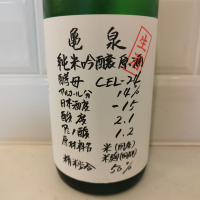 亀泉
生
純米吟醸原酒
酵母 CEL-24
アルコール分 14%
日本酒度 -15
酸度 2.1
アミノ酸 1.2
原材料名 米(国産)
米麹(国産米)
精米歩合 50%